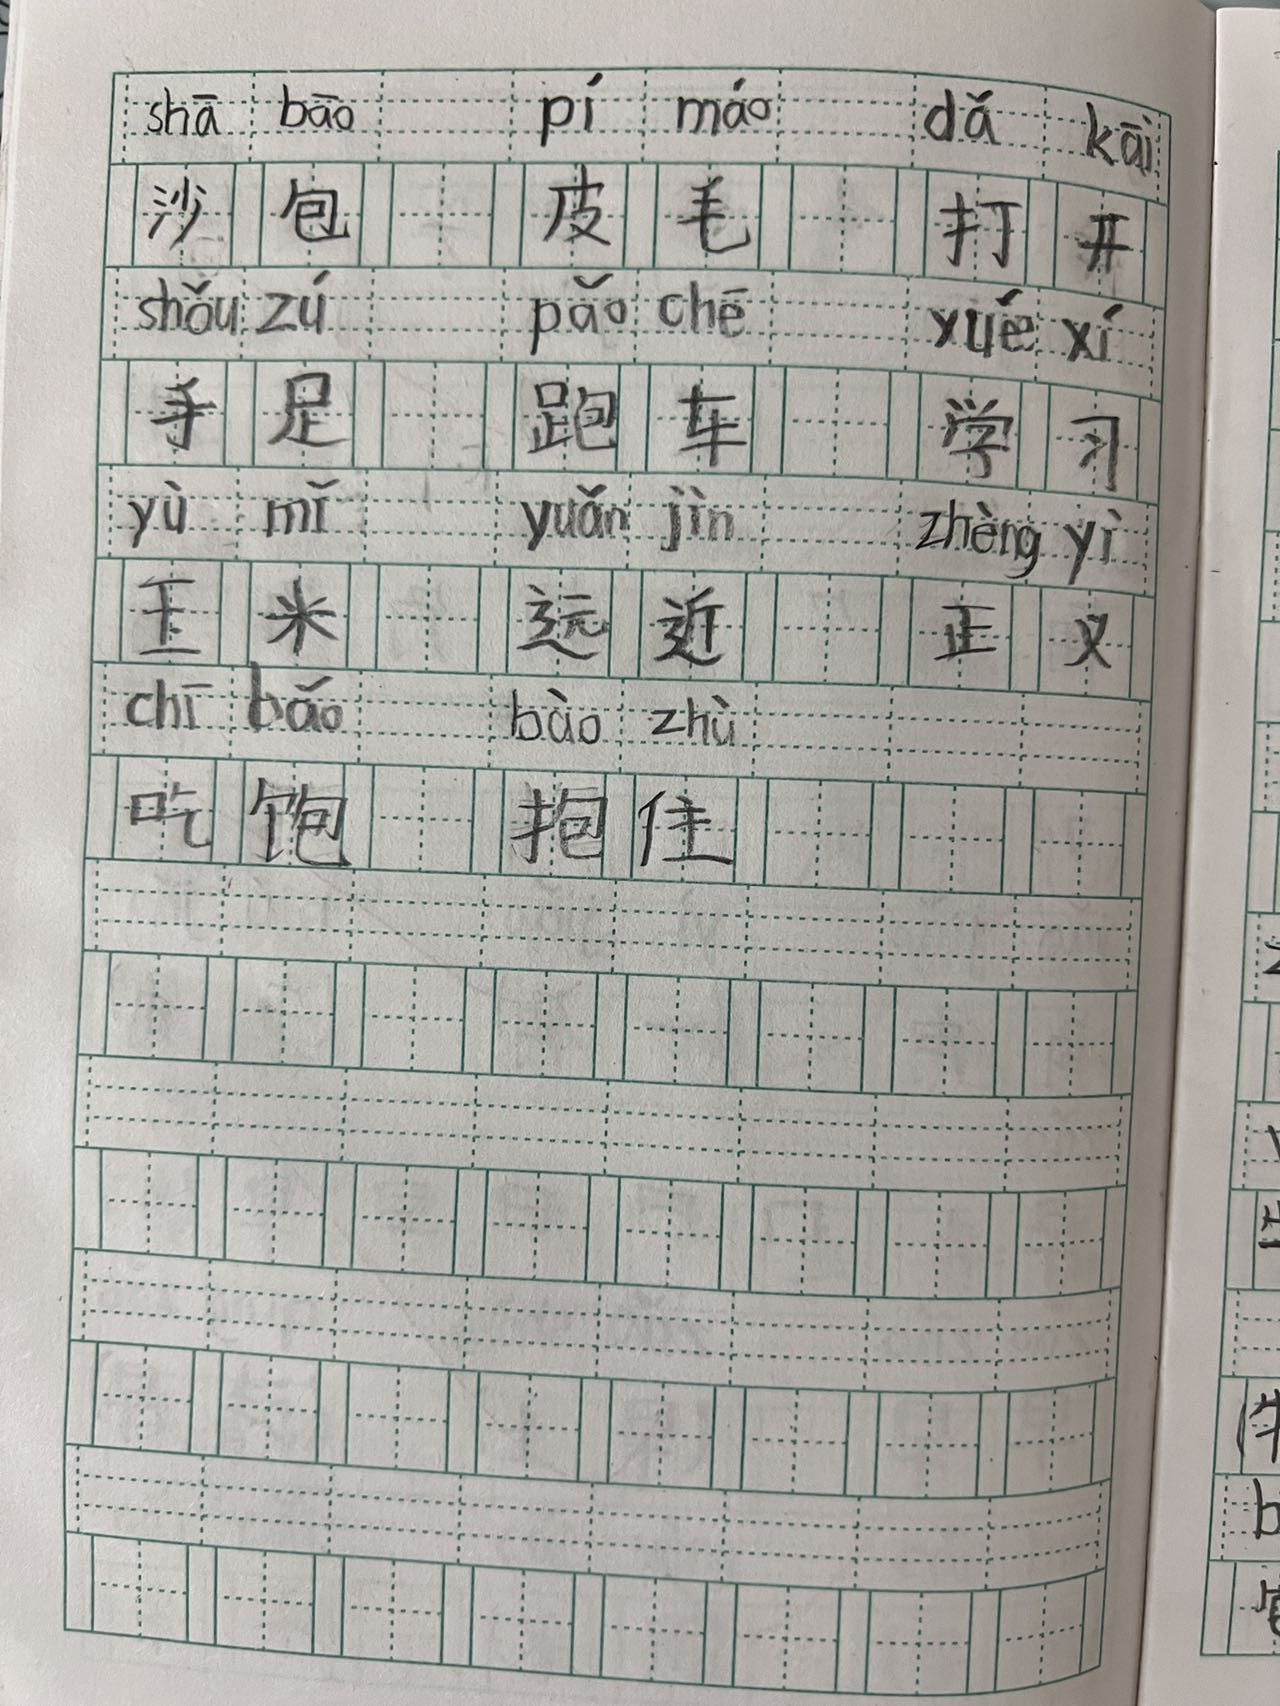 shā bāo pí máo dǎ kāi
沙 包 皮 毛 打 开
shǒu zú pǎo chē xué xí
手 足 跑 车 学 习
yù mǐ yuǎn jìn zhèng yì
玉 米 远 近 正 义
chī bǎo bào zhù
吃 饱 抱 住